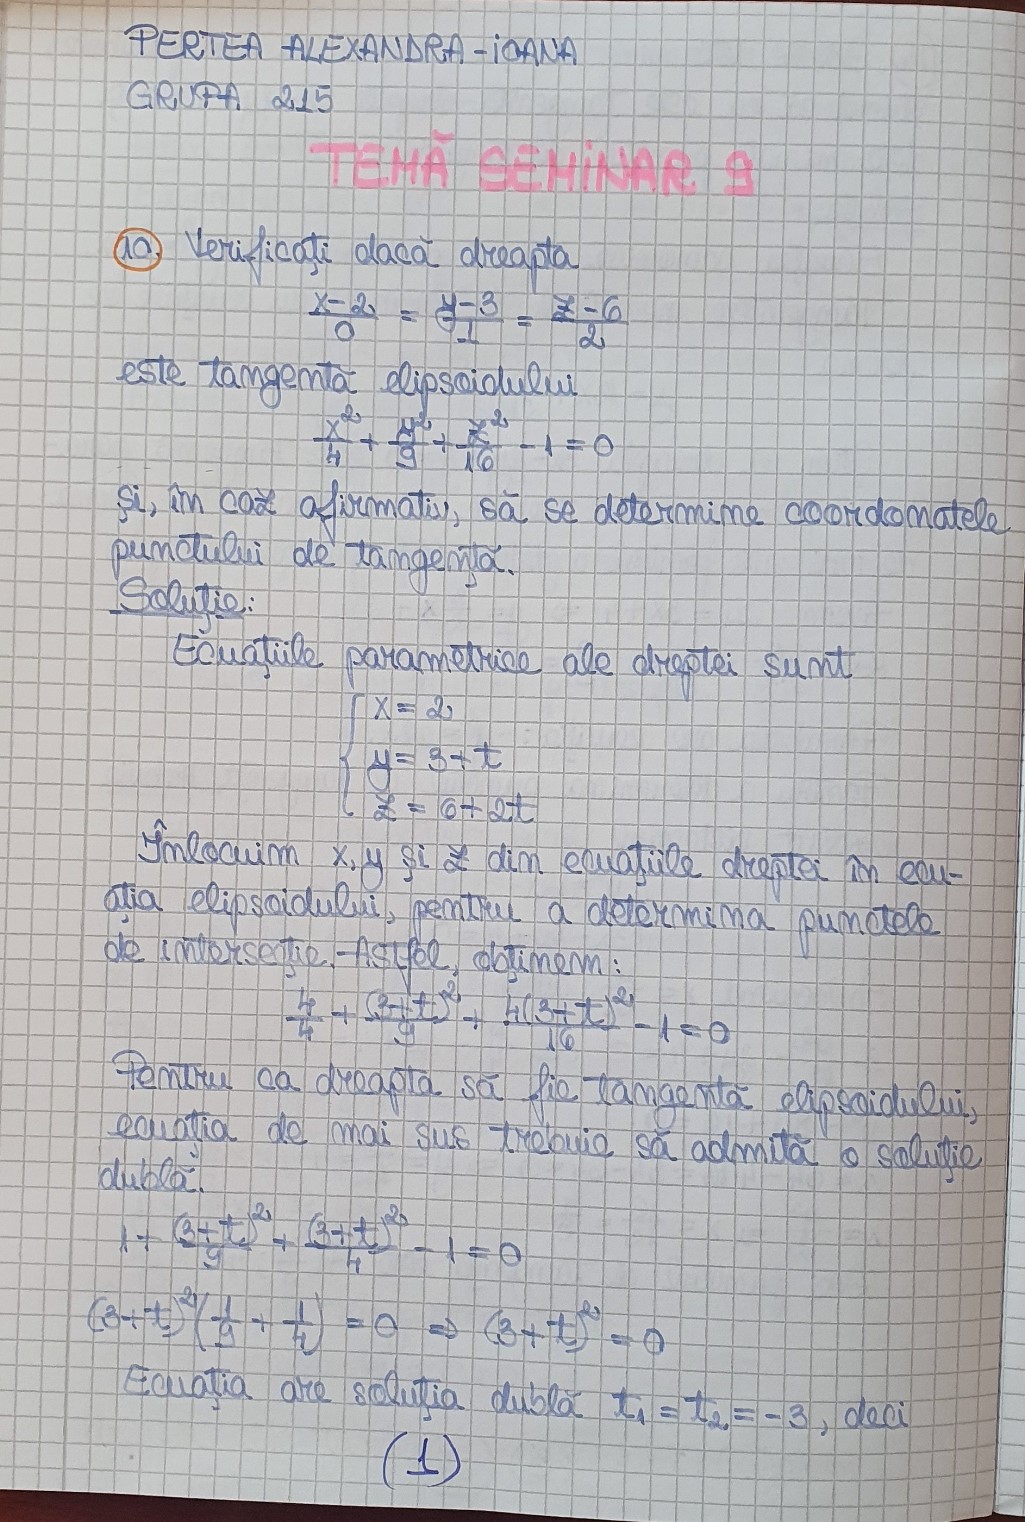 PERTEA ALEXANDRA-IOANA
GRUPA 215
TEMĂ SEMINAR 9
10. Verificați dacă dreapta
(x-2)/0 = (y-3)/1 = (z-6)/2
este tangentă elipsoidului
x²/4 + y²/9 + z²/16 - 1 = 0
și, în caz afirmativ, să se determine coordonatele
punctului de tangență.
Soluție:
Ecuațiile parametrice ale dreptei sunt
{ x = 2
y = 3+t
z = 6+2t
Înlocuim x, y și z din ecuațiile dreptei în ecu-
ația elipsoidului, pentru a determina punctele
de intersecție. Astfel, obținem:
4/4 + (3+t)²/9 + 4(3+t)²/16 - 1 = 0
Pentru ca dreapta să fie tangentă elipsoidului,
ecuația de mai sus trebuie să admită o soluție
dublă.
1 + (3+t)²/9 + (3+t)²/4 - 1 = 0
(3+t)²(1/9 + 1/4) = 0 ⇒ (3+t)² = 0
Ecuația are soluția dublă t₁ = t₂ = -3, deci
(1)